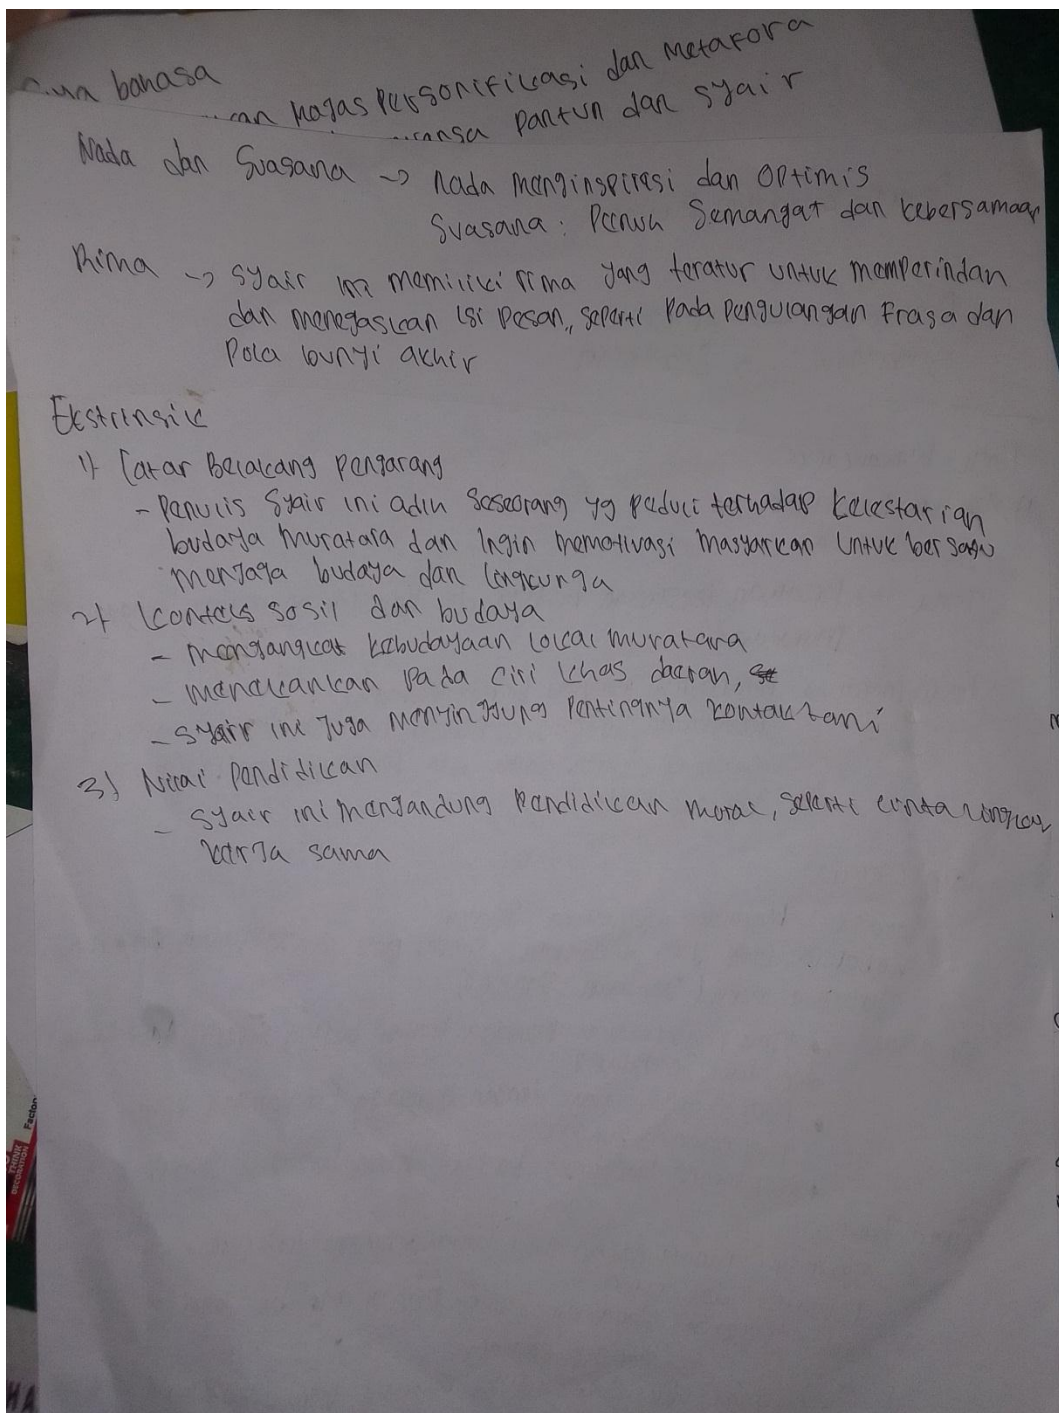 bahasa
majas personifikasi dan Metafora
pantun dan syair
Nada dan Suasana -> nada menginspirasi dan optimis
Suasana : Penuh Semangat dan kebersamaan
Rima -> syair ini memiliki rima yang teratur untuk memperindah
dan menegaskan isi pesan, seperti pada pengulangan Frasa dan
Pola bunyi akhir
Ekstrinsik
1) Latar Belakang pengarang
- Penulis Syair ini adlh Seseorang yg peduli terhadap kelestarian
budaya muratara dan Ingin memotivasi masyarkan Untuk bersagu
menjaga budaya dan lingkunga
2) Konteks sosil dan budaya
- mengangkat kebudayaan lokal muratara
- menekankan pada ciri khas daerah,
- syair ini juga menyinggung pentingnya kontak tani
3) Nilai Pendidikan
- Syair ini mengandung pendidikan moral, seperti cinta
kerja sama
Factor
THINK
DECORATION